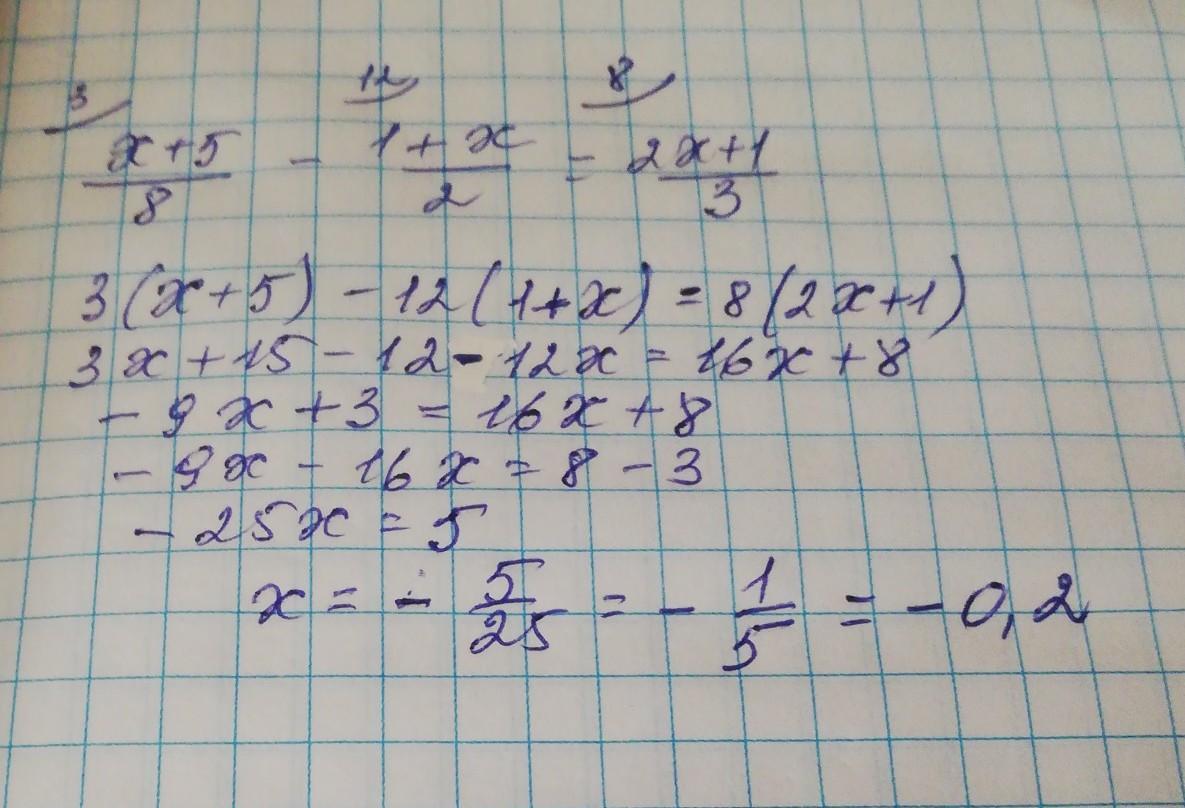 3 12 8
x+5/8 - 1+x/2 = 2x+1/3
3(x+5) - 12(1+x) = 8(2x+1)
3x+15-12-12x = 16x+8
-9x+3 = 16x+8
-9x-16x = 8-3
-25x = 5
x = - 5/25 = - 1/5 = - 0,2